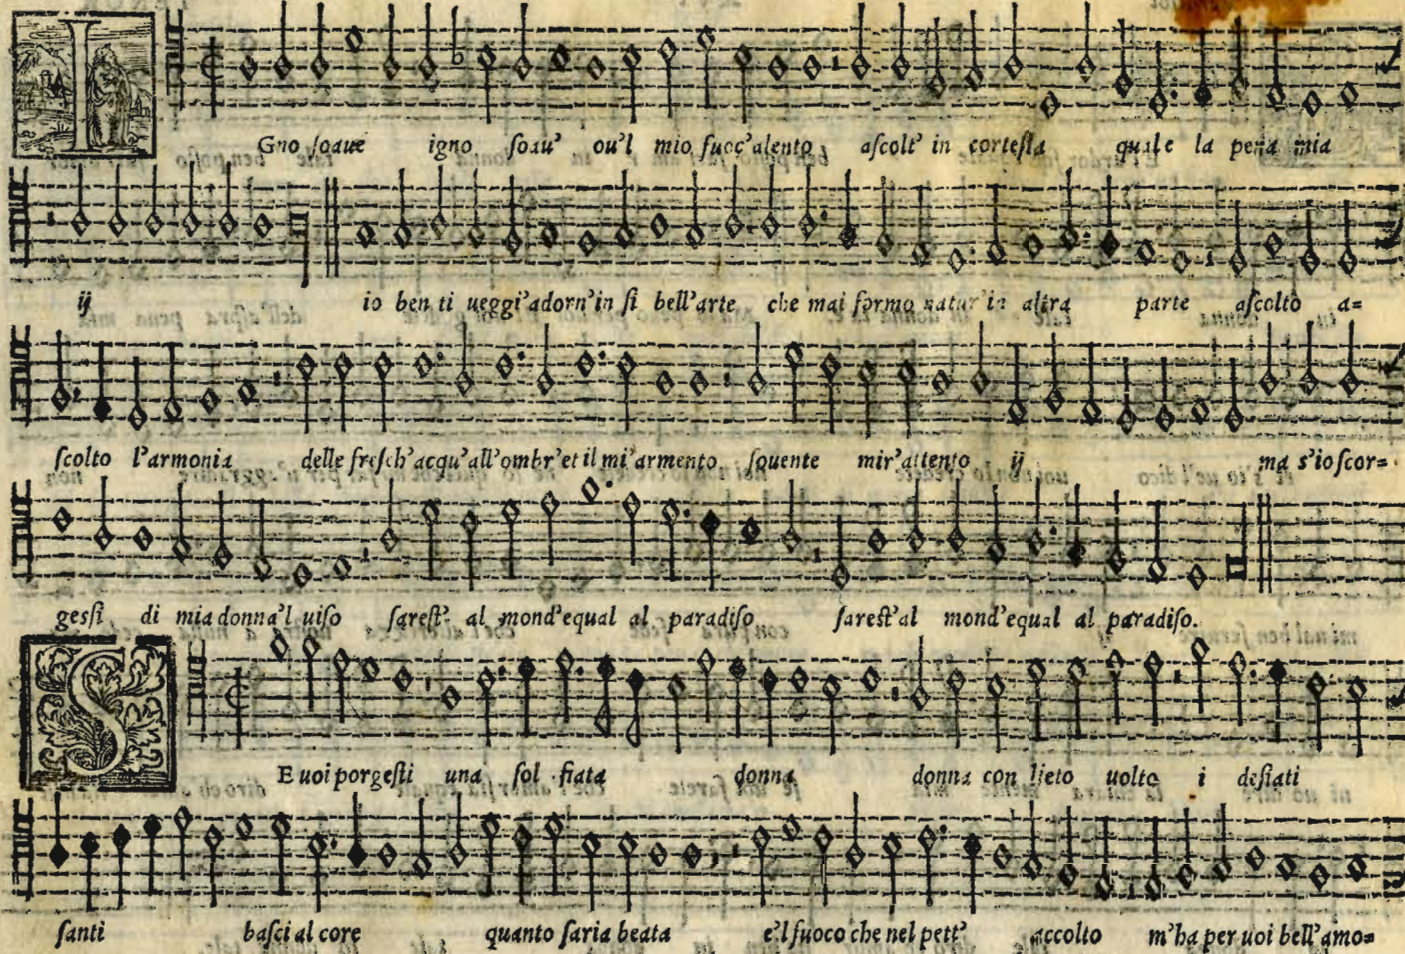 IGno soaue igno soau' ou'l mio fuoc'alento ascolt' in cortesia quale la pena mia
ij io ben ti ueggi'adorn'in si bell'arte che mai formo natur'in altra parte ascolto a=
scolto l'armonia delle fresch'acqu'all'ombr'et il mi'armento souente mir'attento ij ma s'io scor=
gessi di mia donna'l uiso sarest' al mond'equal al paradiso sarest'al mond'equal al paradiso.
SE uoi porgesti una sol fiata donna donna con lieto uolto i desiati
santi basci al core quanto saria beata e'l fuoco che nel pett' accolto m'ha per uoi bell'amo=